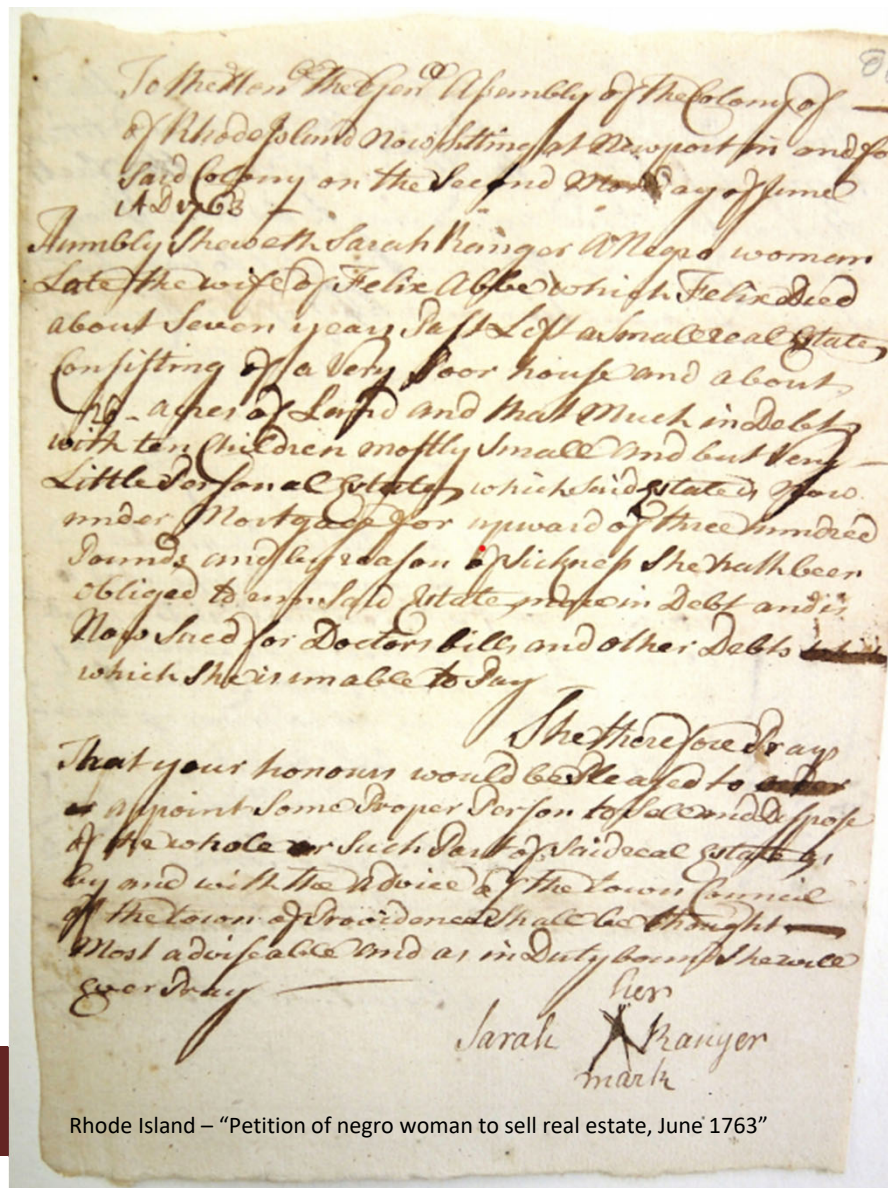 To the Hon.ble the Gen.l Assembly of the Colony of —
of Rhode Island Now Sitting at Newport in and for
said Colony on the Second Monday of June
AD 1763
Humbly Sheweth Sarah Ranger A Negro woman
Late the wife of Felix Abbe which Felix Died
about Seven years Past Left a Small real Estate
Consisting of a Very Poor house and about
26 acres of Land and that Much in Debt
with ten Children mostly Small and but Very —
Little Personal Estate, which Said Estate is Now
under Mortgage for upward of three hundred
Pounds and by reason of Sickness She hath been
obliged to run Said Estate more in Debt and is
Now Sued for Doctors bills and other Debts
which She is unable to Pay
She therefore Prays
That your honours would be Pleased to
appoint Some Proper Person to Sell and Dispose
of the whole or Such Part of Said real Estate as
by and with the advice of the town Council
of the town of Providence Shall be thought —
Most adviseable and as in Duty bound She will
ever Pray —
her
Sarah X Ranger
mark
Rhode Island – “Petition of negro woman to sell real estate, June 1763”